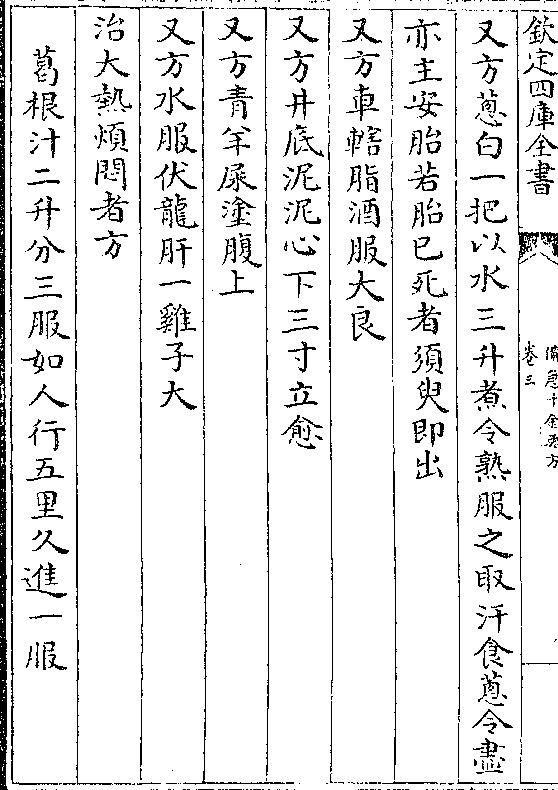 欽定四庫全書
備急千金要方
卷三
又方葱白一把以水三升煮令熟服之取汗食葱令盡
亦主安胎若胎已死者須臾即出
又方車轄脂酒服大良
又方井底泥泥心下三寸立愈
又方青羊屎塗腹上
又方水服伏龍肝一雞子大
治大熱煩悶者方
葛根汁二升分三服如人行五里久進一服